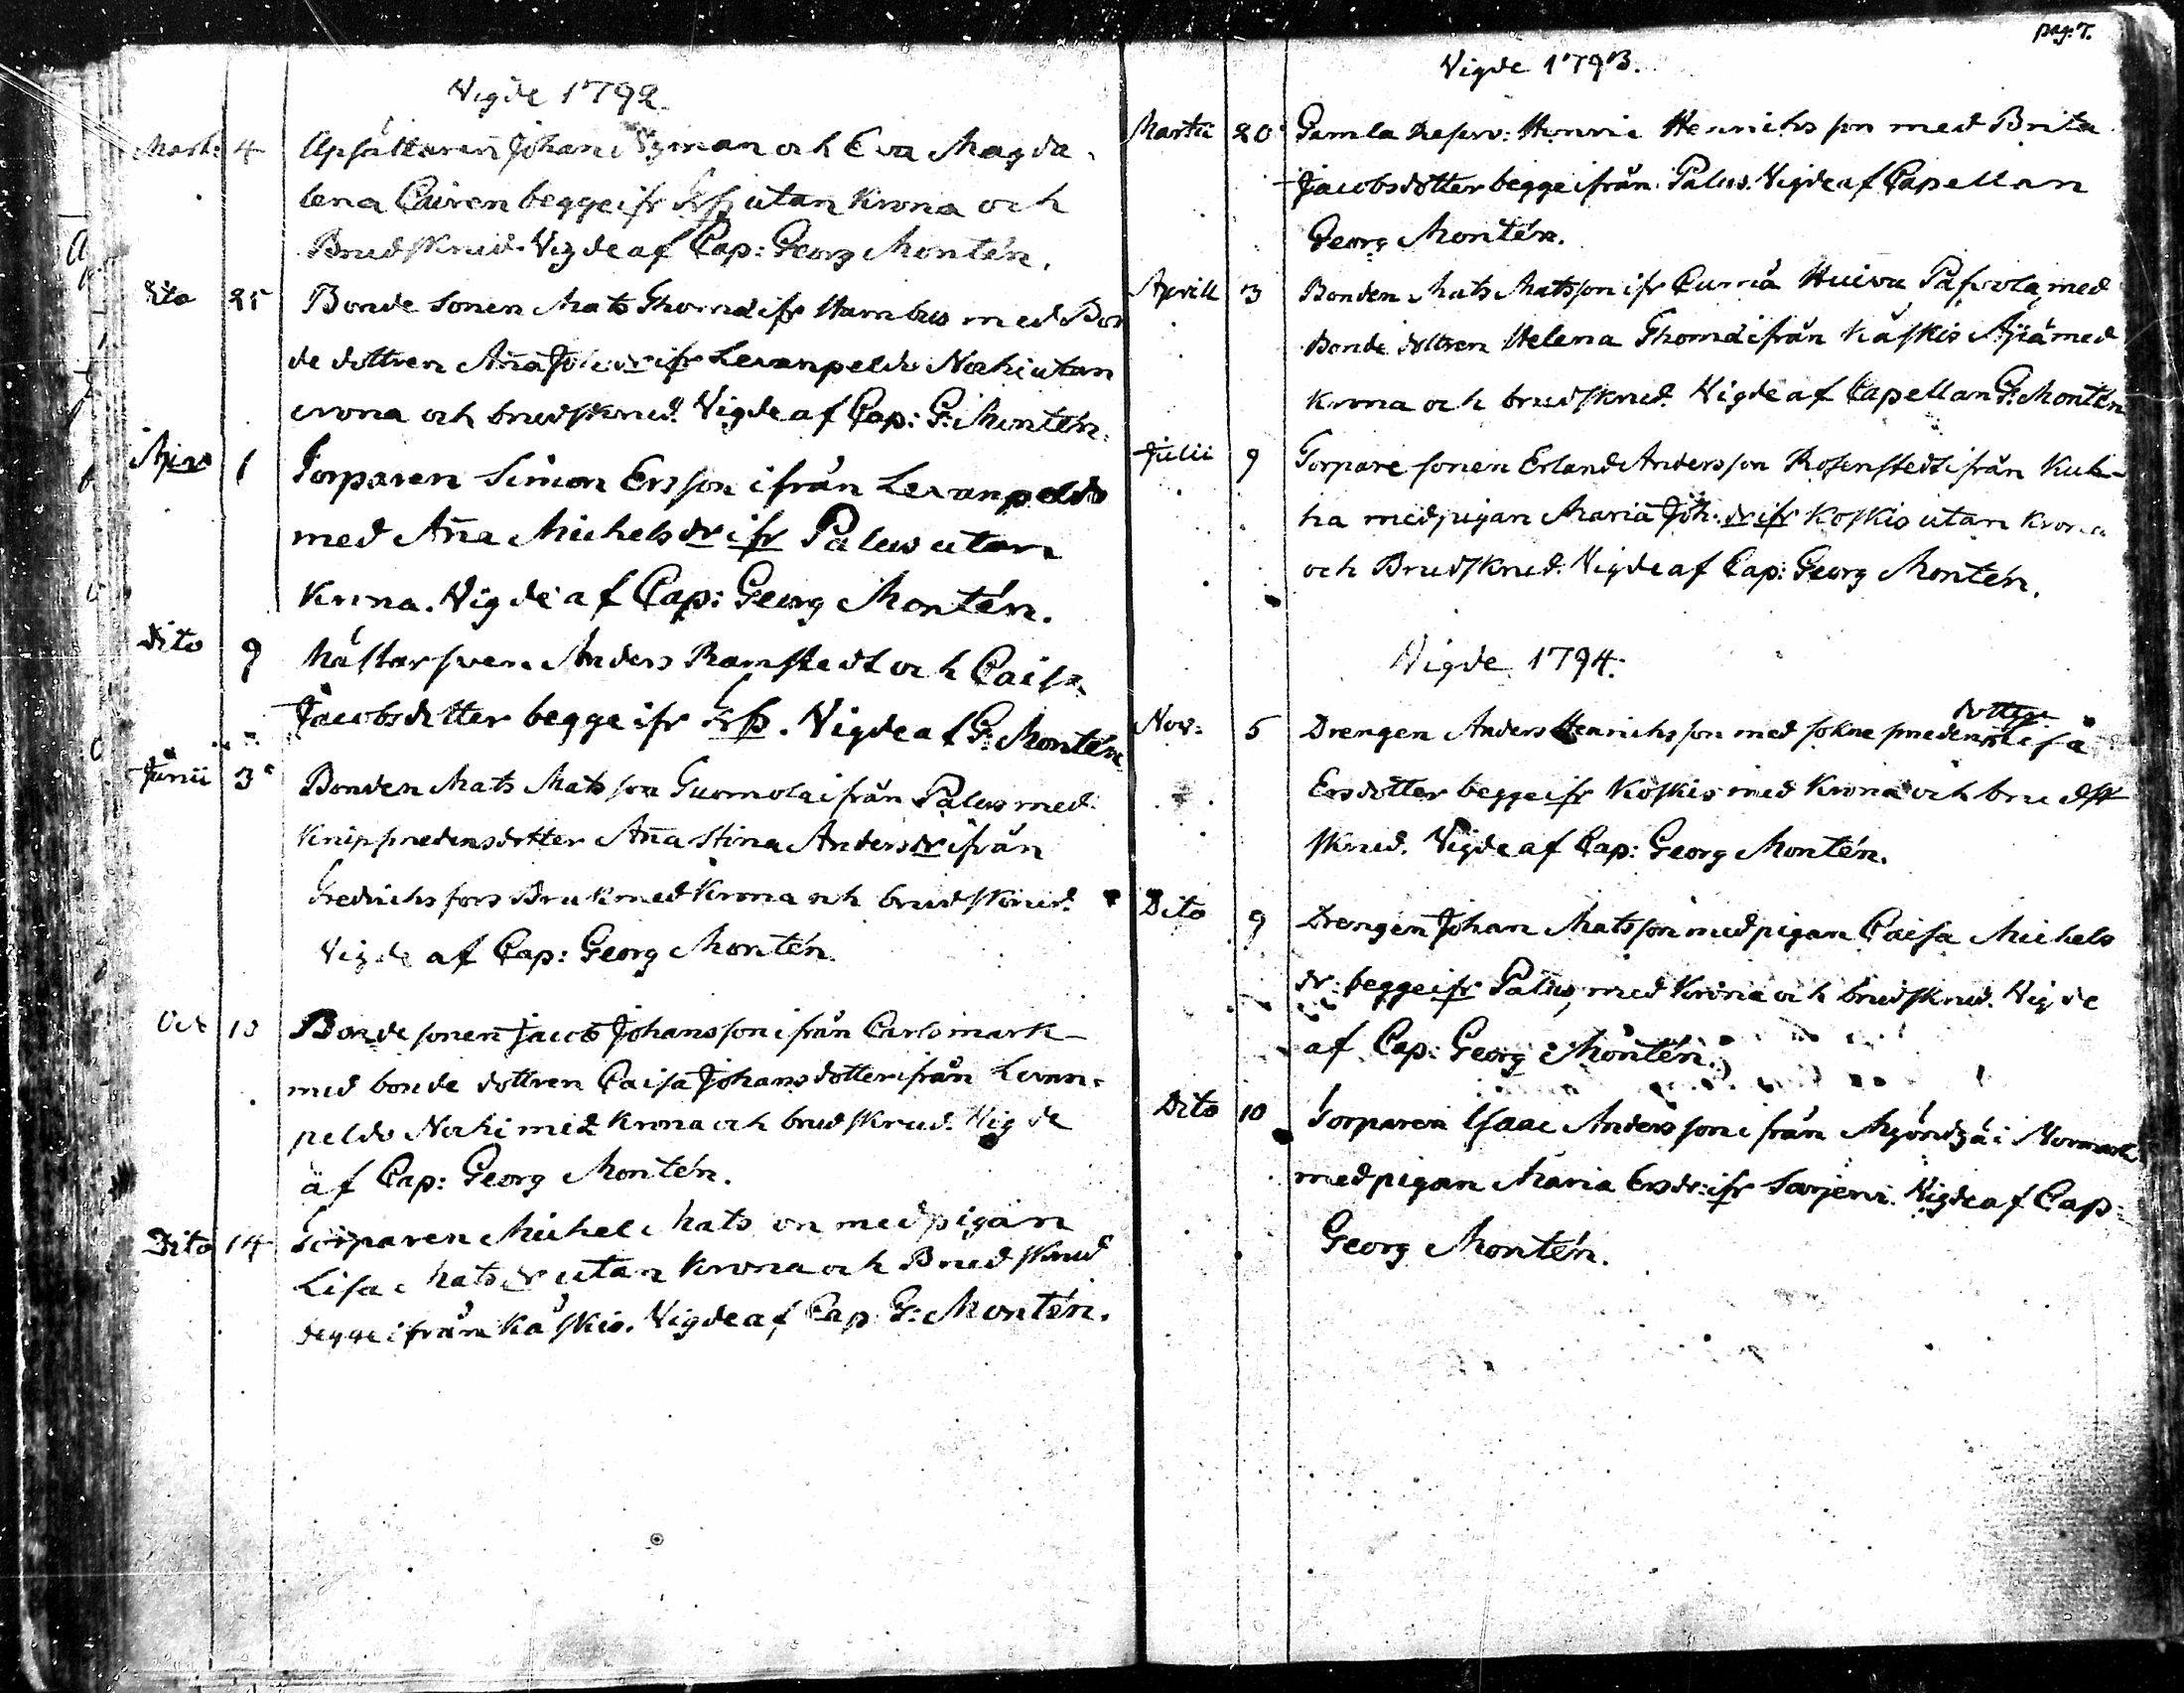 Vigde 1792.
Mart: 4 Upsättaren Johan Nyman och Eva Magda-
lena Cairen begge ifr utan Krona och
Brudskrud. Vigde af Cap: Georg Montén.
dito 25 Bonde Sonen Mats Thomæ ifr Hambus med Bon
de dottren Aña Joh: dr ifr Levanpeldo Nochi utan
crona och brudskrud. Vigde af Cap: G: Montén.
1 Torparen Simon Ersson ifrån Levanpeldo
med Aña Michelsdr ifr Palus utan
Krona. Vigde af Cap: Georg Montén.
Dito 9 Mästarsven Anders Ramstedt och Caisa
Jacobsdotter begge ifr. Vigde af G: Montén
Junii 3 Bonden Mats Matsson Tuomola ifrån Palus med
Knipsmedensdotter Aña Stina Andersdr ifrån
Fredrichsfors Bruk med Krona och brudskrud.
Vigde af Cap: Georg Montén.
Oct 13 Bonde sonen Jacob Johansson ifrån Carlsmark
med bonde dottren Caisa Johansdotter ifrån Levan-
peldo Nochi med Krona och brudskrud. Vigde
af Cap: Georg Montén.
Dito 14 Torparen Michel Matsson med pigan
Lisa Matsdr utan Krona och Brudskrud
begge ifrån Kåskis. Vigde af Cap. G: Montén.
pag: 7.
Vigde 1793.
Martii 20 Gamla Reserv: Henric Henrichsson med Brita
Jacobsdotter begge ifrån Palus. Vigde af Capellan
Georg Montén.
Aprill 3 Bonden Mats Matsson ifr Cumnä Huivu Påsvola med
Bonde dottren Helena Thomæ ifrån Kåskis Äjiä med
Krona och brudskrud. Vigde af Capellan G: Montén
Julii 9 Torpare sonen Erland Andersson Rosenstedt ifrån Kuh-
ha med pigan Maria Joh: dr ifr Koskis utan Krona
och Brudskrud. Vigde af Cap: Georg Montén.
Vigde 1794.
dottren
Nov: 5 Drengen Anders Henrichsson med sokne smedens Lisa
Ersdotter begge ifr Koskis med Krona och brudsk
skrud. Vigde af Cap: Georg Montén.
Dito 9 Drengen Johan Matsson med pigan Caisa Michels
dr: begge ifr Palus, med Krona och brudskrud. Vigde
af Cap: Georg Montén.
Dito 10 Torparen Isaac Andersson ifrån i Normark
med pigan Maria Ersdr: ifr Savjervi. Vigde af Cap:
Georg Montén.